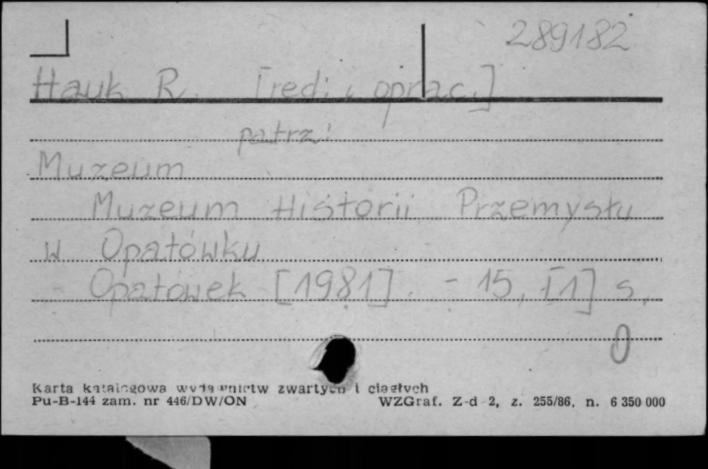 289182
Hauk R. [red. i oprac.]
patrz:
Muzeum
Muzeum Historii Przemysłu
w Opatówku
- Opatówek [1981]. - 15, [1] s.
0
Karta katalogowa wydawnictw zwartych i ciągłych
Pu-B-144 zam. nr 446/DW/ON WZGraf. Z-d 2, z. 255/86, n. 6 350 000